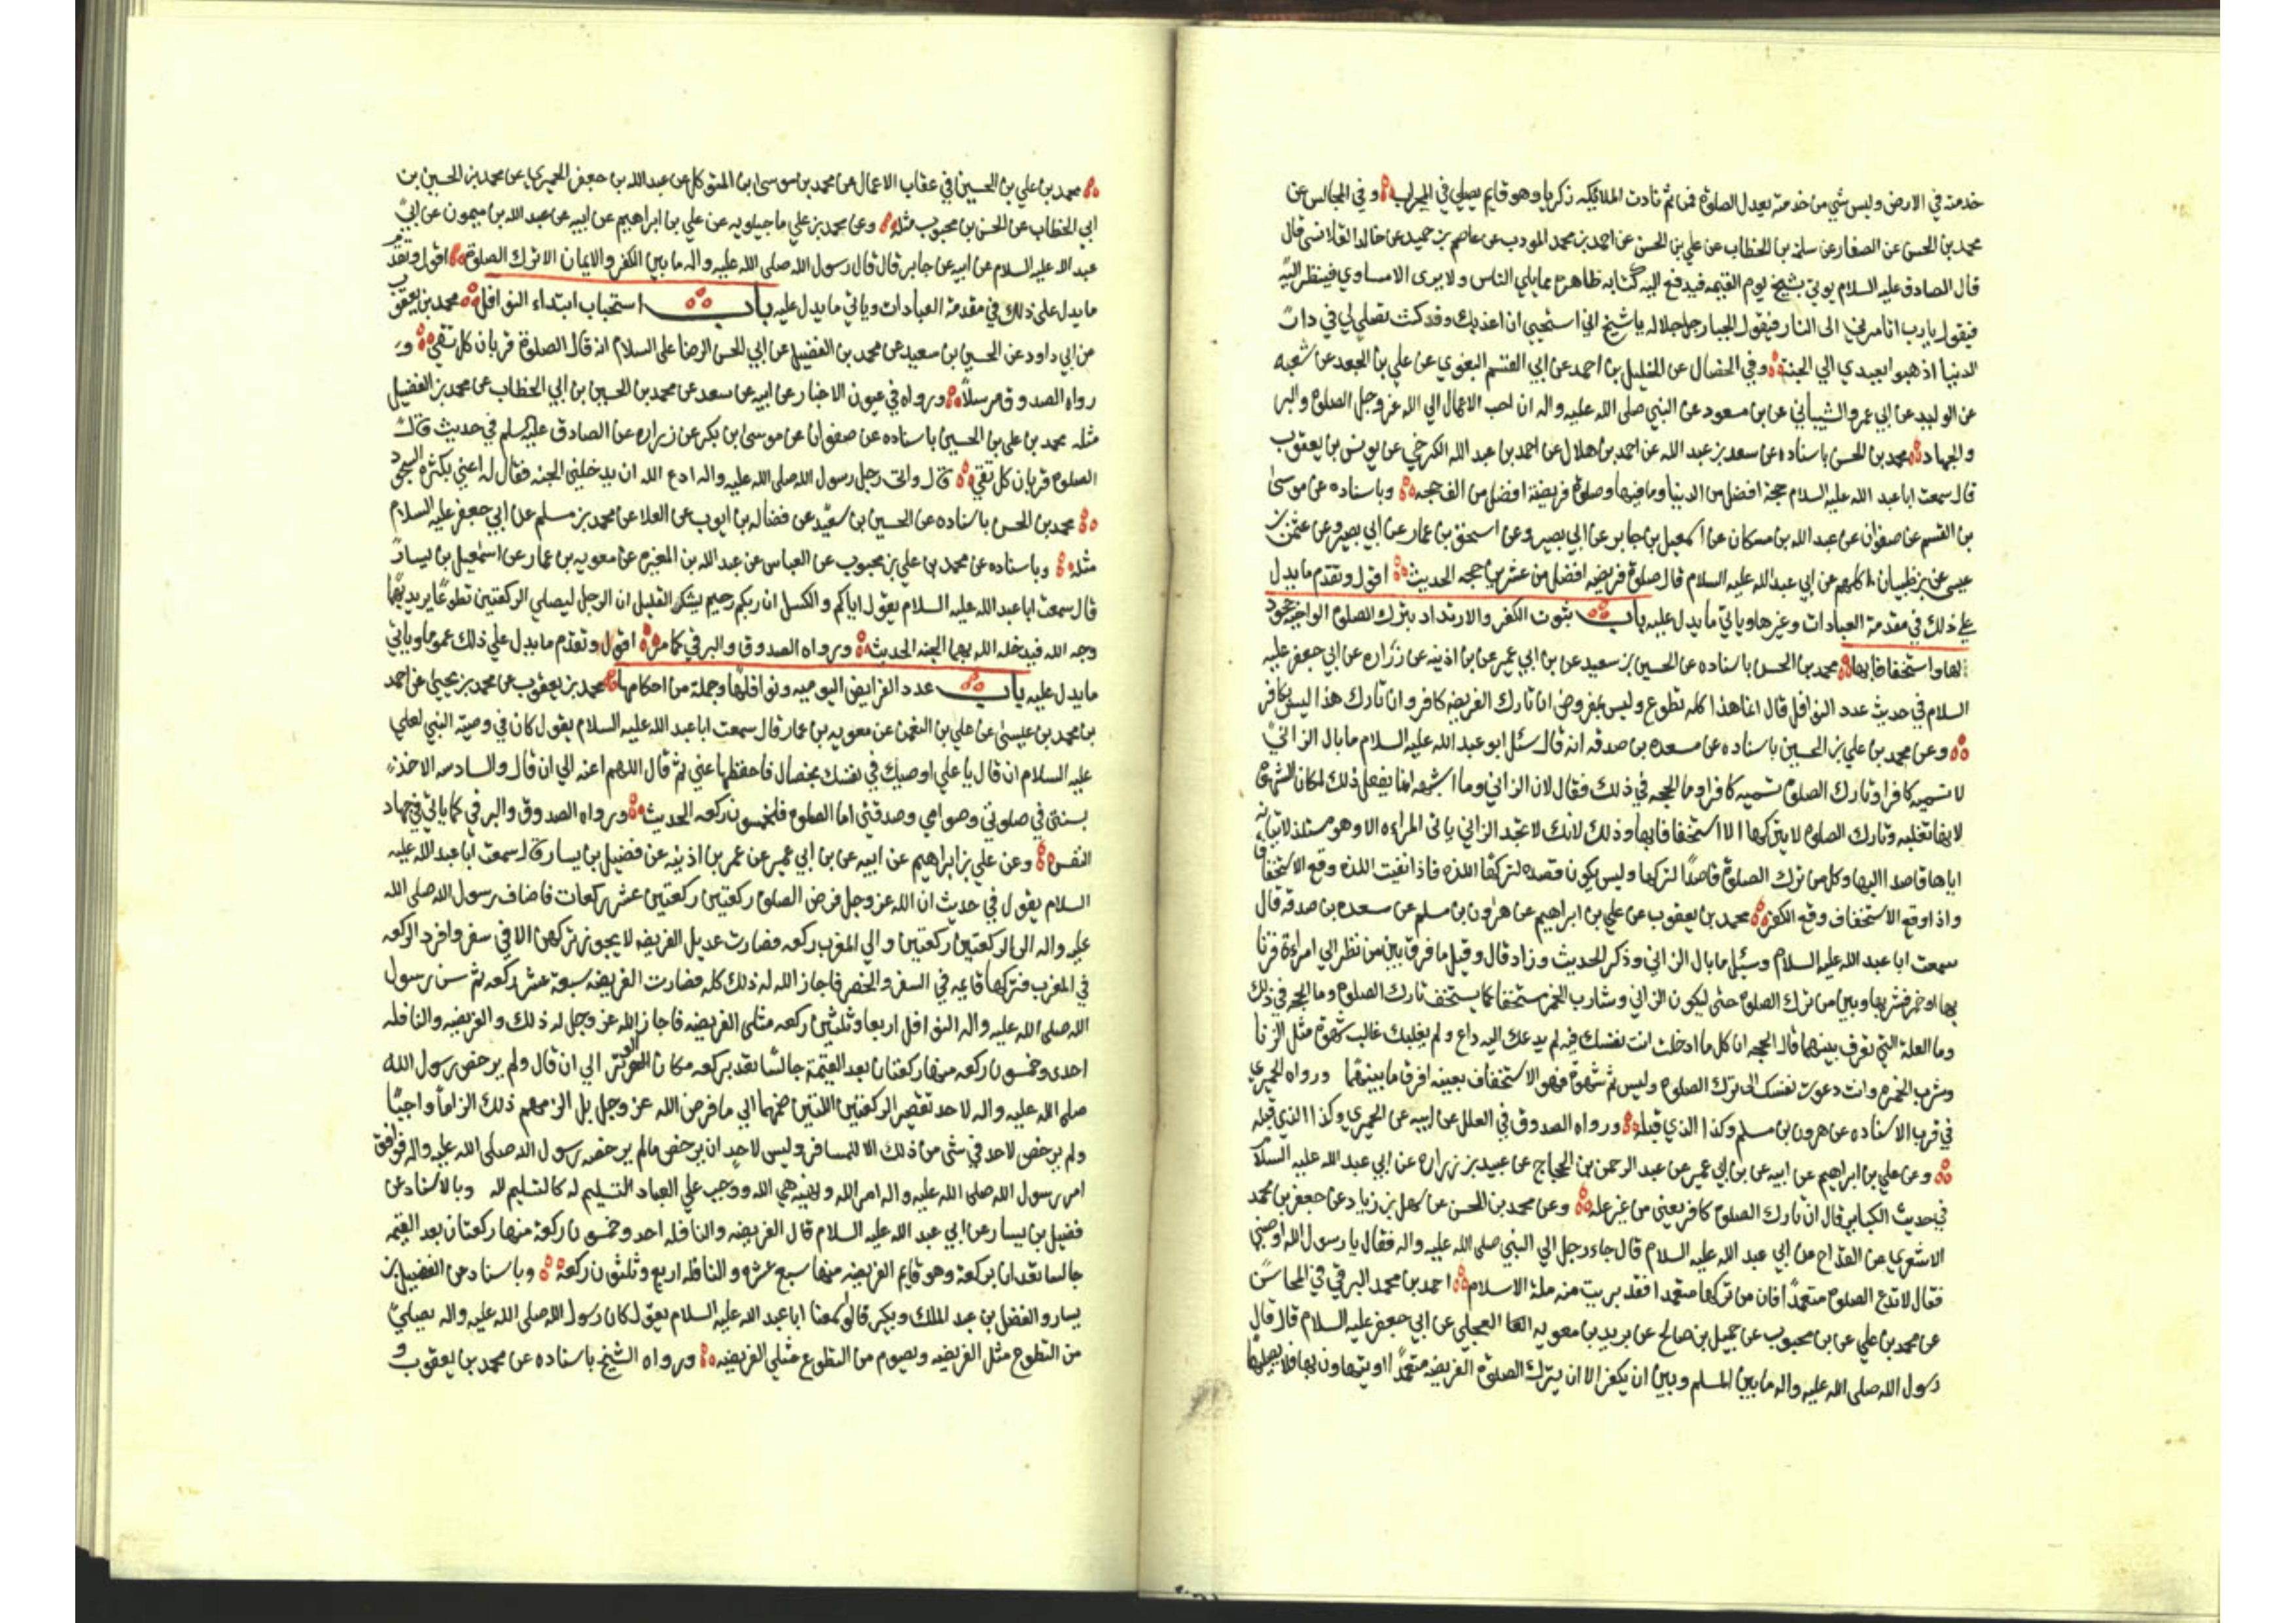 خدمته في الارض وليس شي من خدمته يعدل الصلوة فمن ثم نادت الملائكه زكريا وهو قايم يصلي في المحراب وفي المجالس عن
محمد بن الحسن عن الصفار عن سلمة بن الخطاب عن علي بن الحسن عن احمد بن محمد المودب عن عاصم بن حميد عن خالد القلانسي قال
قال الصادق عليه السلام يوتي بشيخ يوم القيمه فيدفع اليه كتابه ظاهره مما يلي الناس ولا يري الا مساوي فينظر اليه
فيقول يا رب اتامرني الى النار فيقول الجبار جل جلاله يا شيخ اني استحيي ان اعذبك وقد كنت تصلي لي في دار
الدنيا اذهبوا بعبدي الي الجنة وفي الخصال عن الخليل بن احمد عن ابي القسم البغوي عن علي بن الجعد عن شعبه
عن الوليد عن ابي عمرو الشيباني عن بن مسعود عن النبي صلى الله عليه واله ان احب الاعمال الي الله عز وجل الصلوة والبر
والجهاد محمد بن الحسن باسناده عن سعد بن عبد الله عن احمد بن هلال عن احمد بن عبد الله الكرخي عن يونس بن يعقوب
قال سمعت ابا عبد الله عليه السلام حجة افضل من الدنيا وما فيها وصلوة فريضة افضل من الف حجه وباسناده عن موسى
بن القسم عن صفوان عن عبد الله بن مسكان عن اسمعيل بن جابر عن ابي بصير وعن اسحق بن عمار عن ابي بصير وعن عثمن بن
عيسي عن بن ظبيان كلهم عن ابي عبد الله عليه السلام قال صلوة فريضه افضل من عشرين حجه الحديث اقول وتقدم ما يدل
علي ذلك في مقدمة العبادات وغيرها وياتي ما يدل عليه باب ثبوت الكفر والارتداد بترك الصلوة الواجبة جحود
لها واستخفافا بها محمد بن الحسن باسناده عن الحسين بن سعيد عن بن ابي عمير عن بن اذينه عن زراره عن ابي جعفر عليه
السلام في حديث عدد النوافل قال انما هذا كله تطوع وليس بمفروض ان تارك الفريضه كافر وان تارك هذا ليس بكافر
وعن محمد بن علي بن الحسين باسناده عن مسعده بن صدقه انه قال سئل ابو عبد الله عليه السلام ما بال الزاني
لا تسميه كافرا وتارك الصلوة تسميه كافرا وما الحجه في ذلك فقال لان الزاني وما اشبهه انما يفعل ذلك لمكان الشهوة
لانها تغلبه وتارك الصلوة لا يتركها الا استخفافا بها وذلك لانك لا تجد الزاني ياتى المراءه الا وهو مستلذ لاتيانه
اياها قاصدا اليها وكل من ترك الصلوة قاصدا لتركها وليس يكون قصده لتركها اللذه فاذا نفيت اللذه وقع الاستخفاف
واذا وقع الاستخفاف وقع الكفر محمد بن يعقوب عن علي بن ابراهيم عن هرون بن مسلم عن مسعده بن صدقه قال
سمعت ابا عبد الله عليه السلام وسئل ما بال الزاني وذكر الحديث وزاد قال وقيل ما فرق بين من نظر الي امراءة فزنا
بها او خمر فشربها وبين من ترك الصلوة حتى لا يكون الزاني وشارب الخمر مستخفا كما يستخف تارك الصلوة وما الحجه في ذلك
وما العلة التي تفرق بينهما قال الحجه ان كل ما ادخلت انت نفسك فيه لم يدعك اليه داع ولم يغلبك غالب شهوة مثل الزنا
وشرب الخمر وانت دعوت نفسك الى ترك الصلوة وليس ثم شهوة فهو الاستخفاف بعينه فرق ما بينهما ورواه الحميري
في قرب الاسناد عن هرون بن مسلم وكذا الذي قبله ورواه الصدوق في العلل عن ابيه عن الحميري وكذا الذي قبله
وعن علي بن ابراهيم عن ابيه عن بن ابي عمير عن عبد الرحمن بن الحجاج عن عبيد بن زراره عن ابي عبد الله عليه السلام
في حديث الكباير قال ان تارك الصلوة كافر يعني من غير علة وعن محمد بن الحسن عن سهل بن زياد عن جعفر بن محمد
الاشعري عن القداح عن ابي عبد الله عليه السلام قال جاء رجل الي النبي صلى الله عليه واله فقال يا رسول الله اوصني
فقال لا تدع الصلوة متعمدا فان من تركها متعمدا فقد بريت منه ملة الاسلام احمد بن محمد البرقي في المحاسن
عن محمد بن علي عن بن محبوب عن جميل بن صالح عن بريد بن معويه العجلي عن ابي جعفر عليه السلام قال قال
رسول الله صلى الله عليه واله ما بين المسلم وبين ان يكفر الا ان يترك الصلوة الفريضه متعمدا او يتهاون بها فلا يصليها
محمد بن علي بن الحسين في عقاب الاعمال عن محمد بن موسى بن المتوكل عن عبد الله بن جعفر الحميري عن محمد بن الحسين بن
ابي الخطاب عن الحسن بن محبوب مثله وعن محمد بن علي ماجيلويه عن علي بن ابراهيم عن ابيه عن عبد الله بن ميمون عن ابي
عبد الله عليه السلام عن ابيه عن جابر قال قال رسول الله صلى الله عليه واله ما بين الكفر والايمان الا ترك الصلوة اقول وتقدم
ما يدل على ذلك في مقدمة العبادات وياتي ما يدل عليه باب استحباب ابتداء النوافل محمد بن يعقوب
عن ابي داود عن الحسين بن سعيد عن محمد بن الفضيل عن ابي الحسن الرضا على السلام انه قال الصلوة قربان كل تقي و
رواه الصدوق مرسلا ورواه في عيون الاخبار عن ابيه عن سعد عن محمد بن الحسين بن ابي الخطاب عن محمد بن الفضيل
مثله محمد بن علي بن الحسين باسناده عن صفوان عن موسى بن بكر عن زراره عن الصادق عليه السلم في حديث قال
الصلوة قربان كل تقي قال واتى رجل رسول الله صلى الله عليه واله ادع الله ان يدخلني الجنه فقال له اعني بكثرة السجود
محمد بن الحسن باسناده عن الحسين بن سعيد عن فضاله بن ايوب عن العلا عن محمد بن مسلم عن ابي جعفر عليه السلام
مثله وباسناده عن محمد بن علي بن محبوب عن العباس عن عبد الله بن المغيره عن معويه بن عمار عن اسمعيل بن يسار
قال سمعت ابا عبد الله عليه السلام يقول اياكم والكسل ان ربكم رحيم يشكر القليل ان الرجل ليصلي الركعتين تطوعا يريد بهما
وجه الله فيدخله الله بهما الجنه الحديث ورواه الصدوق والبرقي كما مر اقول وتقدم ما يدل علي ذلك عموما وياتي
ما يدل عليه باب عدد الفرايض اليوميه ونوافلها وجملة من احكامها محمد بن يعقوب عن محمد بن يحيى عن احمد
بن محمد بن عيسى عن علي بن النعمن عن معويه بن عمار قال سمعت ابا عبد الله عليه السلام يقول كان في وصية النبي لعلي
عليه السلام ان قال يا علي اوصيك في نفسك بخصال فاحفظها عني ثم قال اللهم اعنه الي ان قال والسادسه الاخذ
بسنتي في صلوتي وصوامي وصدقتي اما الصلوة فالخمسون ركعه الحديث ورواه الصدوق والبرقي كما ياتي في جهاد
النفس وعن علي بن ابراهيم عن ابيه عن بن ابي عمير عن عمر بن اذينه عن فضيل بن يسار قال سمعت ابا عبد الله عليه
السلام يقول في حديث ان الله عز وجل فرض الصلوة ركعتين ركعتين عشر ركعات فاضاف رسول الله صلى الله
عليه واله الى الركعتين ركعتين والي المغرب ركعه فصارت عديل الفريضه لا يجوز تركهن الا في سفر وافرد الركعه
في المغرب فتركها قايمه في السفر والحضر فاجاز الله له ذلك كله فصارت الفريضه سبعة عشر ركعه ثم سن رسول
الله صلى الله عليه واله النوافل اربعا وثلثين ركعه مثلى الفريضه فاجاز الله عز وجل له ذلك والفريضه والنافله
احدى وخمسون ركعه منها ركعتان بعد العتمة جالسا تعد بركعه مكان الوتر الي ان قال ولم يرخص رسول الله
صلى الله عليه واله لاحد تقصير الركعتين اللتين ضمهما الي ما فرض الله عز وجل بل الزمهم ذلك الزاما واجبا
ولم يرخص لاحد في شي من ذلك الا للمسافر وليس لاحد ان يرخص ما لم يرخصه رسول الله صلى الله عليه واله فوافق
امر رسول الله صلى الله عليه واله امر الله ونهيه نهي الله ووجب علي العباد التسليم له كالتسليم لله وبالاسناد عن
فضيل بن يسار عن ابي عبد الله عليه السلام قال الفريضه والنافله احد وخمسون ركعة منها ركعتان بعد العتمه
جالسا تعدان بركعة وهو قايم الفريضه منها سبع عشره والنافله اربع وثلثون ركعة وباسناد عن الفضيل بن
يسار والفضل بن عبد الملك وبكير قالوا سمعنا ابا عبد الله عليه السلام يقول كان رسول الله صلى الله عليه واله يصلي
من التطوع مثل الفريضه ويصوم من التطوع مثلي الفريضه ورواه الشيخ باسناده عن محمد بن يعقوب و